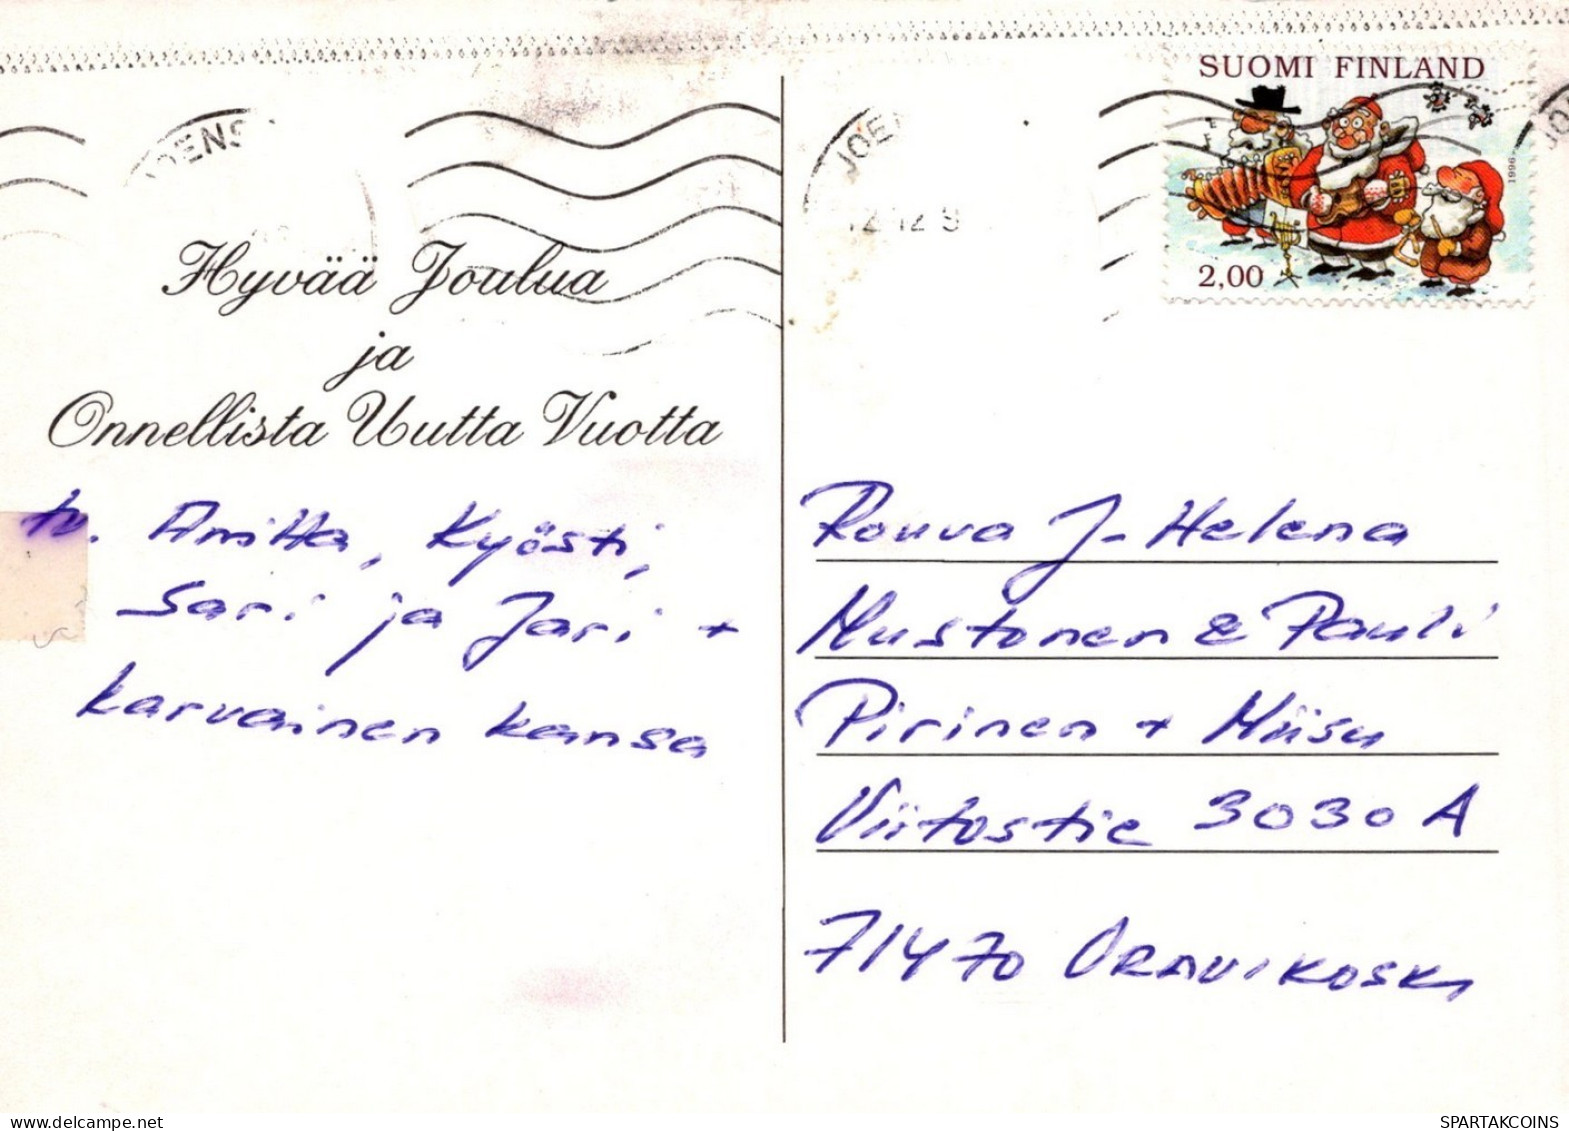 SUOMI FINLAND
1996
2,00
JOENS
JOE
12.12.9
JO
Hyvää Joulua
ja
Onnellista Uutta Vuotta
tv. Anitta, Kyösti,
Sari ja Jari +
karvainen kansa
Rouva J-Helena
Mustonen & Pauli
Pirinen + Miisu
Viitostie 3030 A
71470 ORAVIKOSKI
SPARTAKCOINS